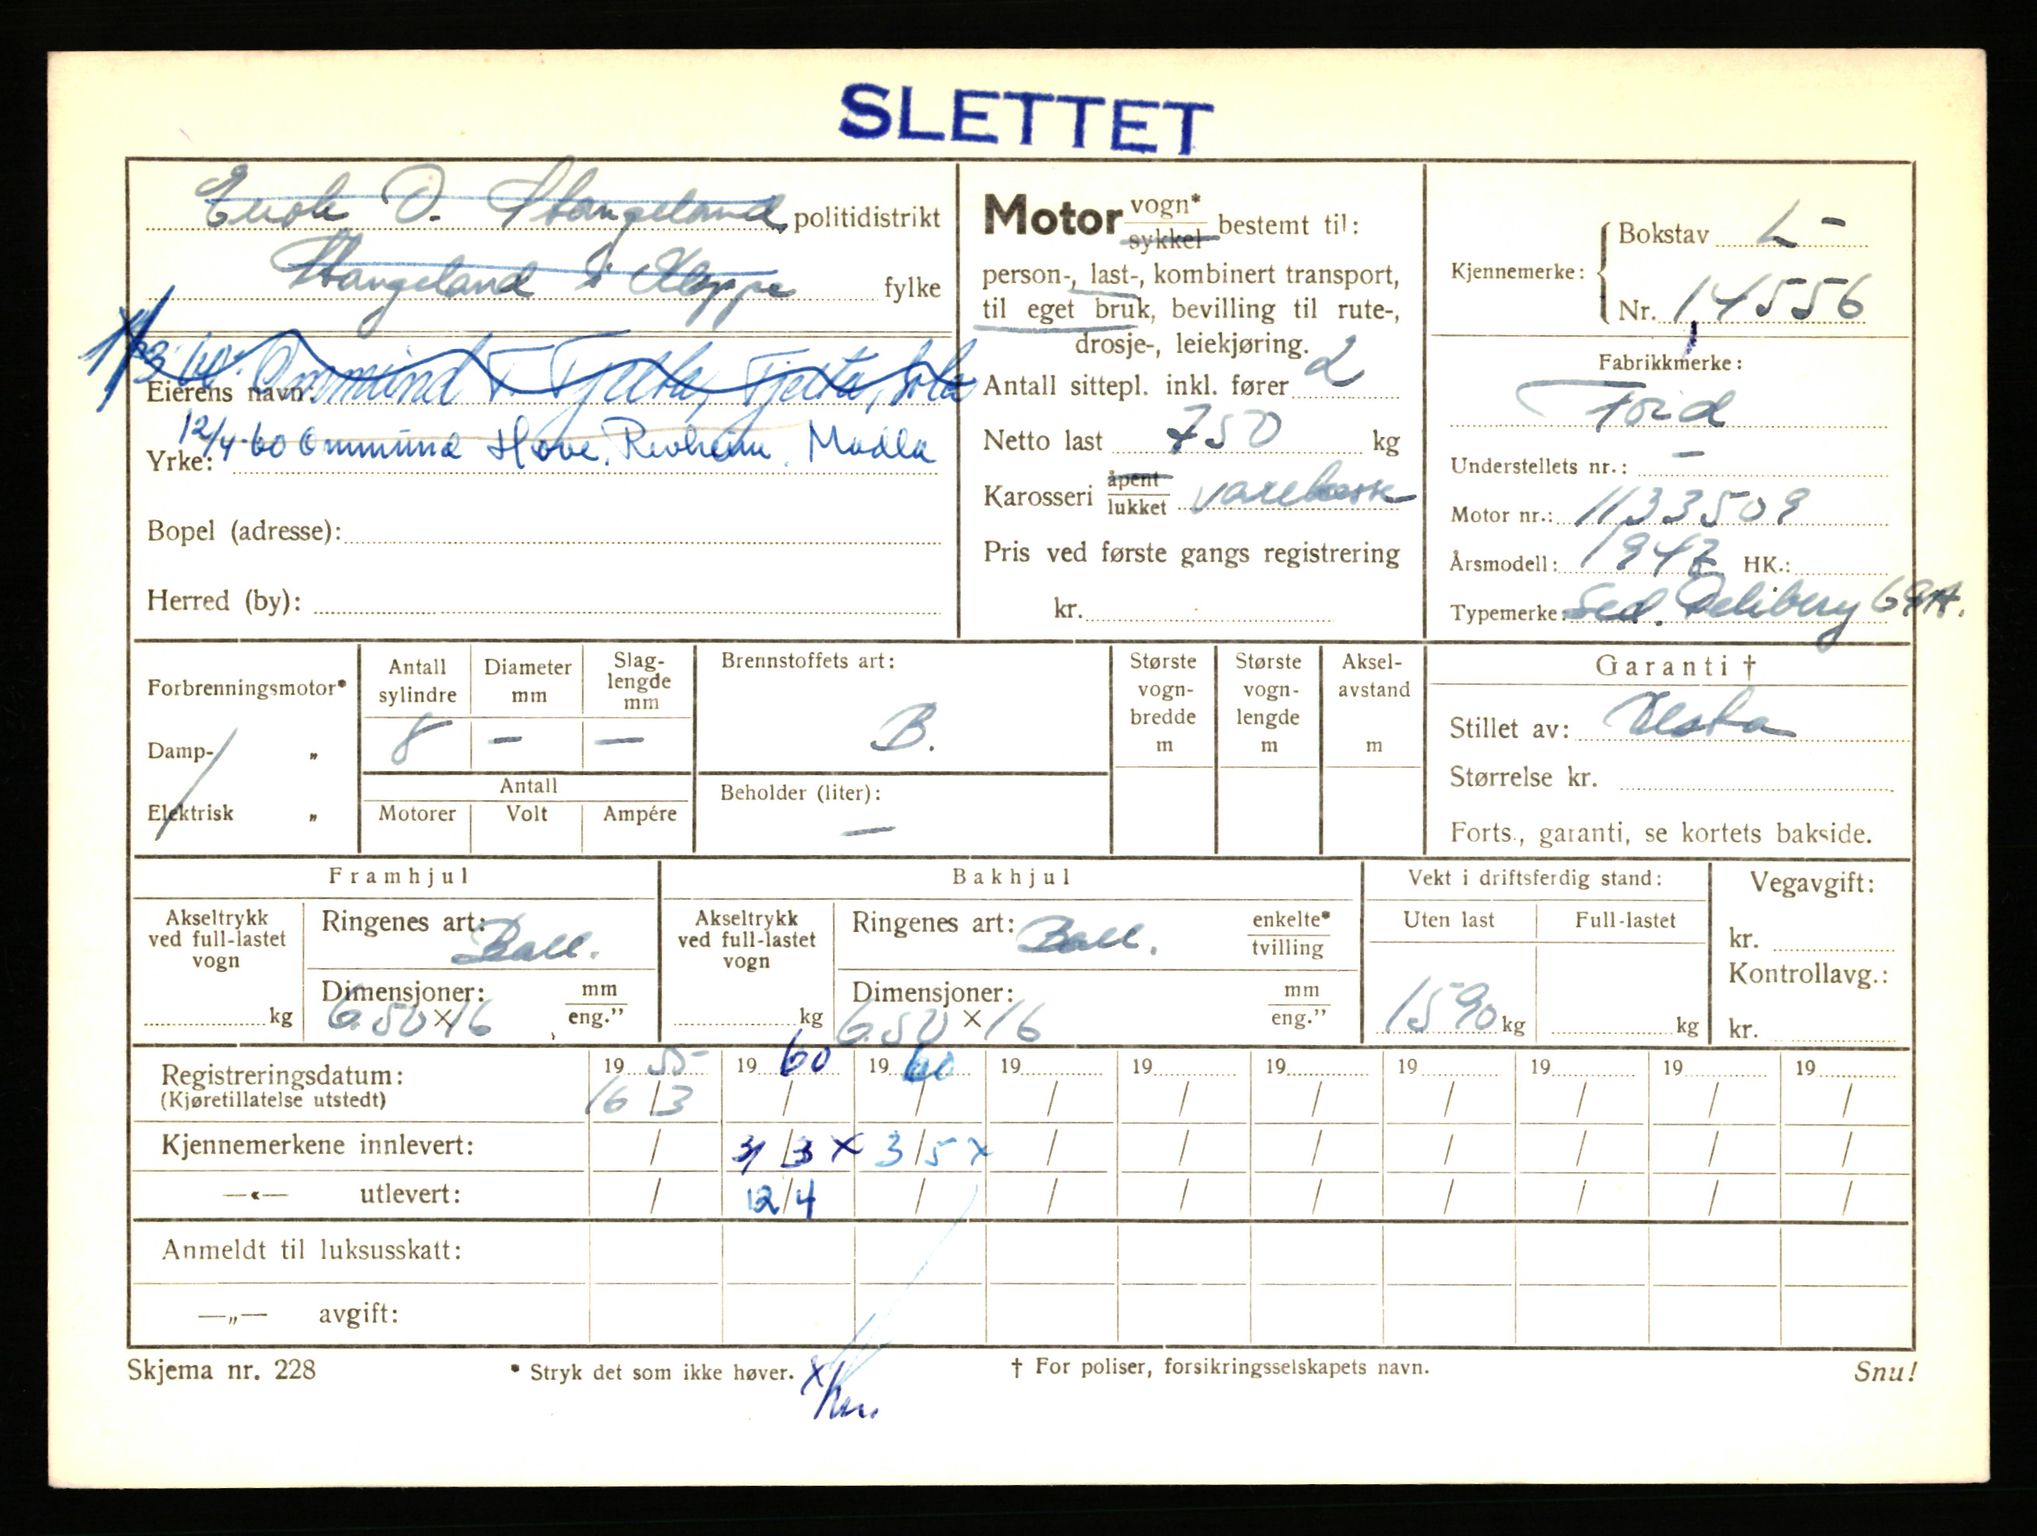 SLETTET
Enok O. Stangeland politidistrikt
Stangeland i Kleppe fylke
60. Ommund T. Tjelta, Tjelta, Sola
Eierens navn:
12/4-60 Ommund Hove, Revheim. Madla
Yrke:
Bopel (adresse):
Herred (by):
Motor vogn* sykkel bestemt til:
person-, last-, kombinert transport,
til eget bruk, bevilling til rute-,
drosje-, leiekjøring.
Antall sittepl. inkl. fører 2
Netto last 750 kg
Karosseri åpent lukket varekasse
Pris ved første gangs registrering
kr.
Kjennemerke: Bokstav L-
Nr. 14556
Fabrikkmerke:
Ford
Understellets nr.: -
Motor nr.: 1133509
Årsmodell: 1947 HK.:
Typemerke: Sed. Delibery 69A.
Forbrenningsmotor*
Damp- "
Elektrisk "
Antall sylindre
8
Diameter mm
-
Slag-lengde mm
-
Antall
Motorer Volt Ampére
Brennstoffets art:
B.
Beholder (liter):
-
Største vogn-bredde m
Største vogn-lengde m
Aksel-avstand m
Garanti †
Stillet av: Vesta
Størrelse kr.
Forts., garanti, se kortets bakside.
Framhjul
Akseltrykk ved full-lastet vogn
kg
Ringenes art: Ball.
Dimensjoner: mm eng."
6.50×16
Bakhjul
Akseltrykk ved full-lastet vogn
kg
Ringenes art: Ball. enkelte* tvilling
Dimensjoner: mm eng."
6.50×16
Vekt i driftsferdig stand:
Uten last Full-lastet
1590 kg kg
Vegavgift:
kr.
Kontrollavg.:
kr.
Registreringsdatum: 1955 1960 1960 19 19 19 19 19 19 19
(Kjøretillatelse utstedt) 16/3 / / / / / / / / /
Kjennemerkene innlevert: / 3/3 × 3/5 × / / / / / / /
—«— utlevert: / 12/4 / / / / / / / /
Anmeldt til luksusskatt:
—„— avgift:
Skjema nr. 228 * Stryk det som ikke høver. † For poliser, forsikringsselskapets navn. Snu!
×